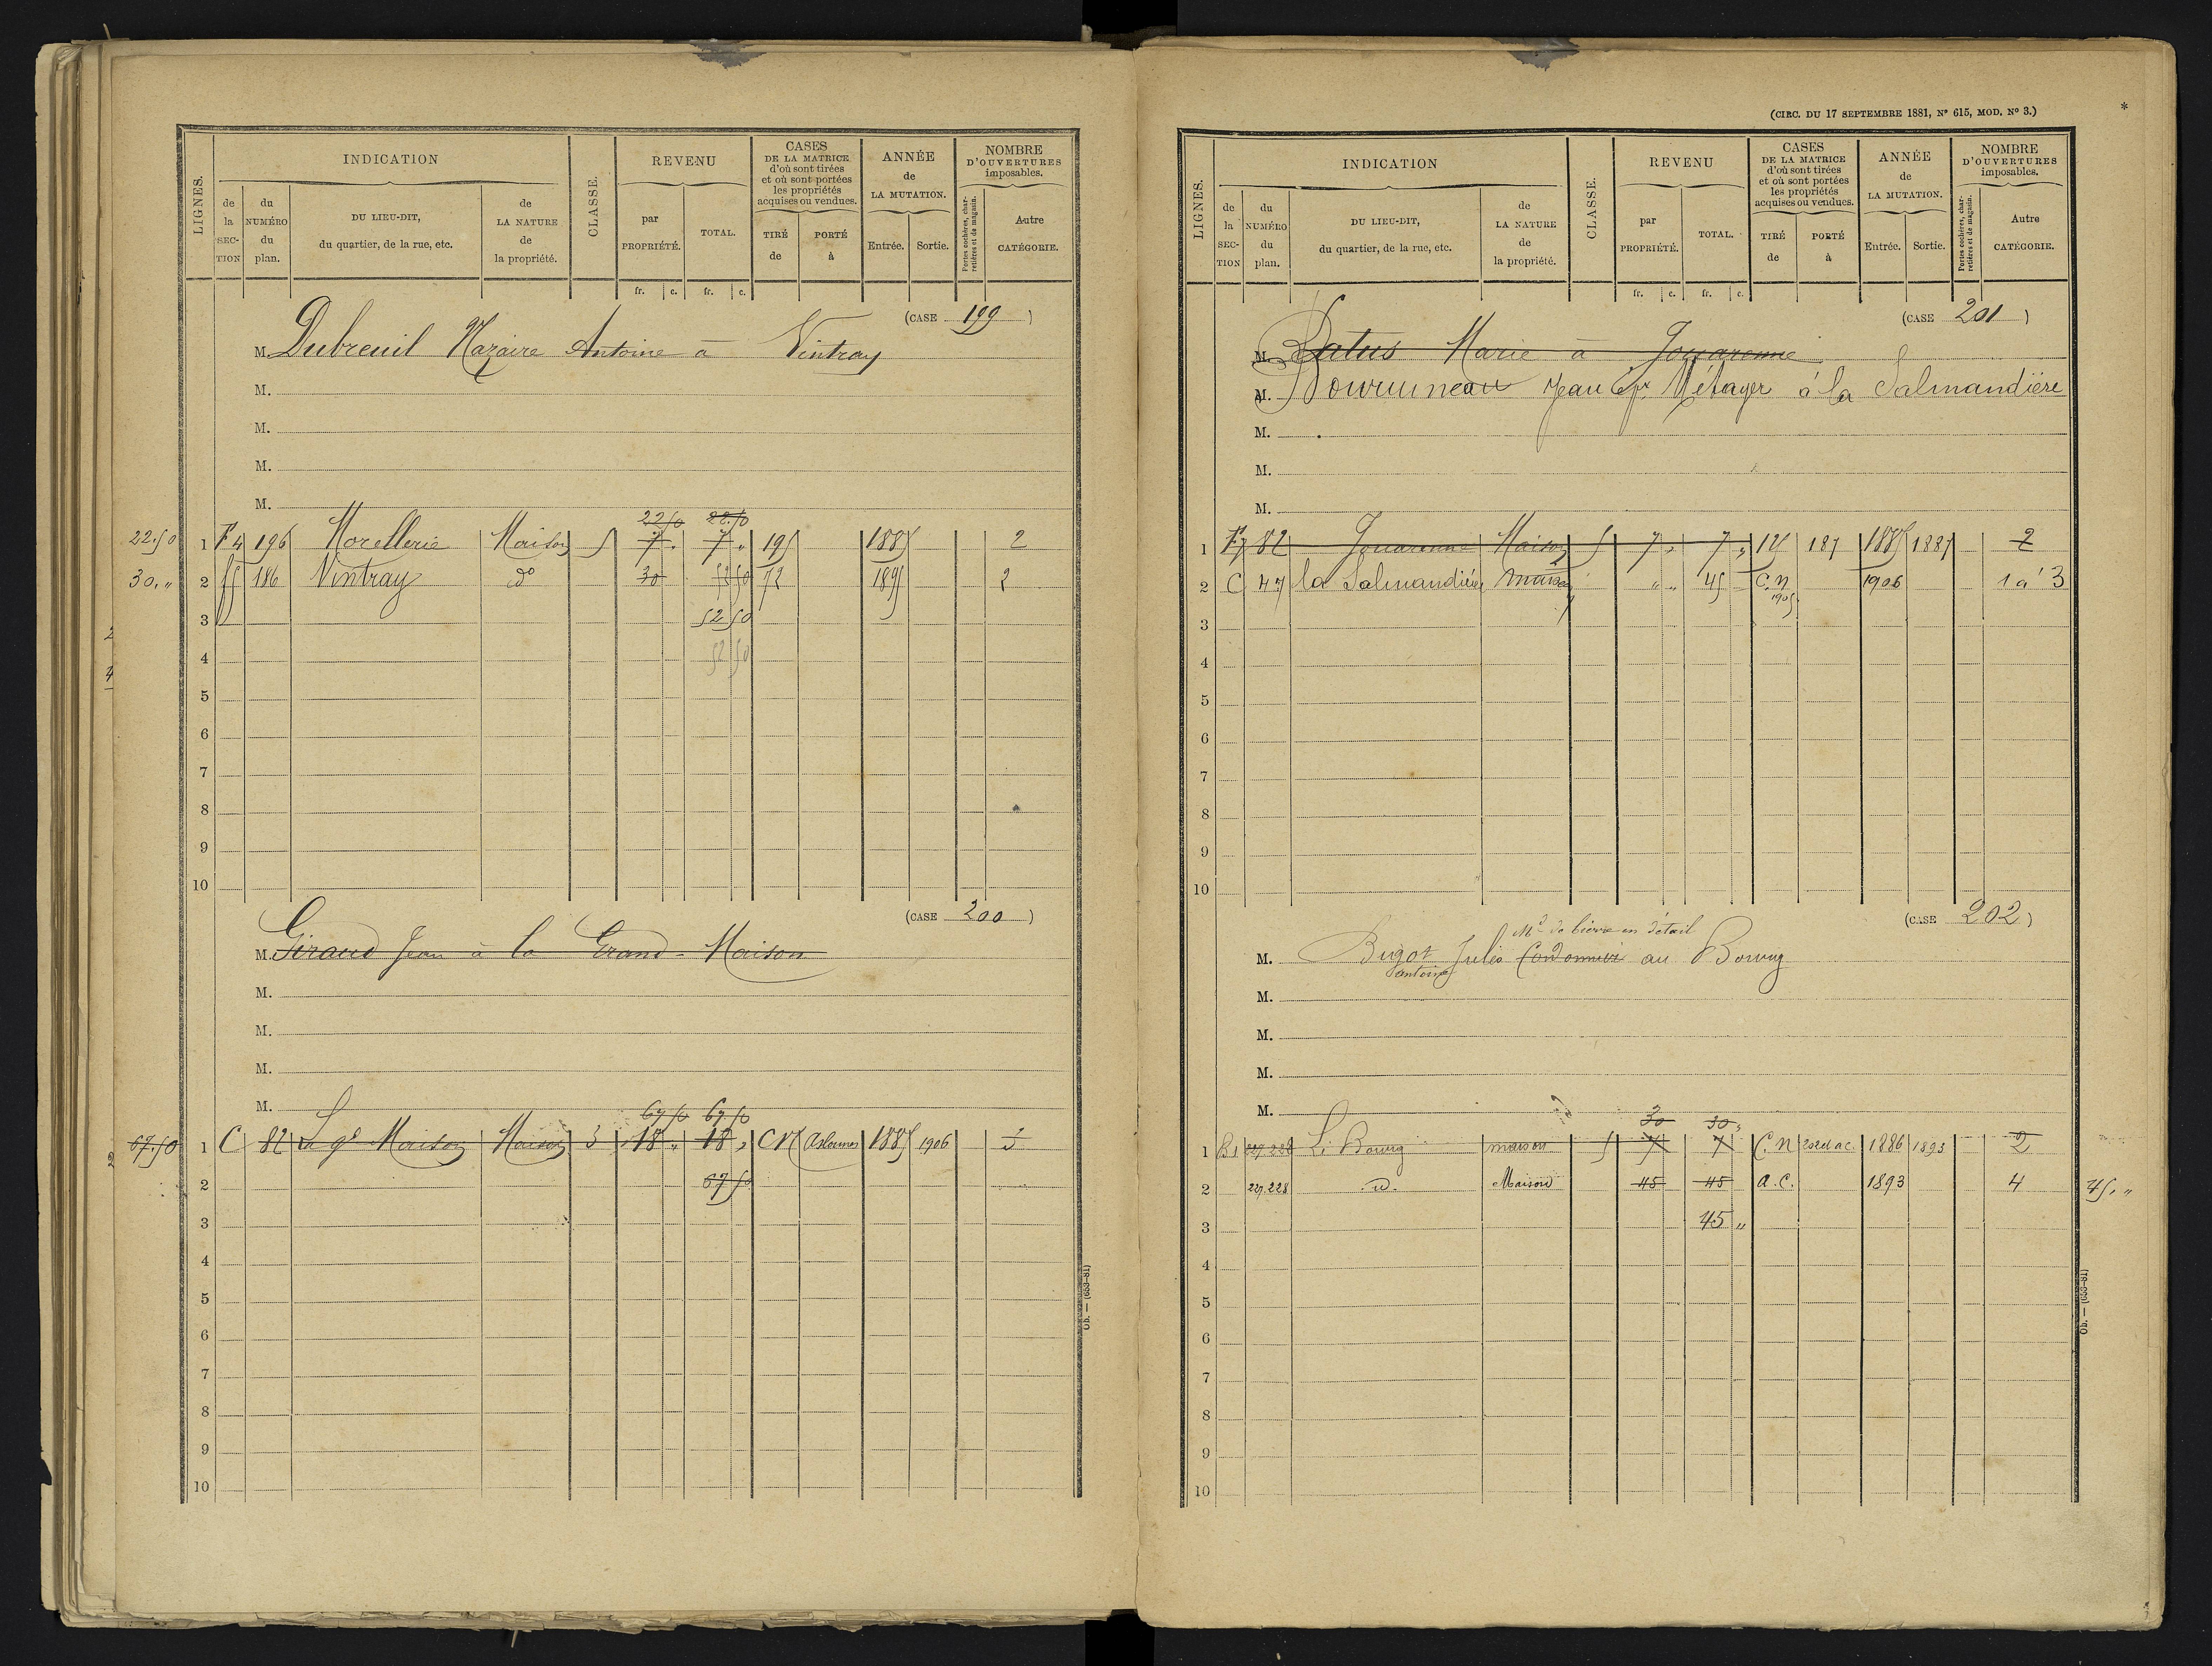 LIGNES.
INDICATION
de la SECTION
du NUMÉRO du plan.
DU LIEU-DIT, du quartier, de la rue, etc.
de LA NATURE de la propriété.
CLASSE.
REVENU
par PROPRIÉTÉ.
TOTAL.
fr. c. fr. c.
CASES DE LA MATRICE d'où sont tirées et où sont portées les propriétés acquises ou vendues.
TIRÉ de
PORTÉ à
ANNÉE de LA MUTATION.
Entrée. Sortie.
NOMBRE D'OUVERTURES imposables.
Portes cochères, charretières et de magasin.
Autre CATÉGORIE.
(CASE 199)
M. Dubreuil Nazaire Antoine à Vintray
M.
M.
M.
M.
22.50 22.50
22.50 1 F4 196 Morellerie Maison 5 7 " 7 " 195 1885 2
30. " 2 186 Vintray do 30 52 50 72 1895 2
3 52 50
4 52 50
5
6
7
8
9
10
(CASE 200)
M. Giraud Jean à la Grand-Maison
M.
M.
M.
M.
67 50 67 50
67.50 1 C 82 La gde Maison Maison 3 18 " 18 " CN 1885 1906 3
2 67 50
3
4
5
6
7
8
9
10
Ob. — (633-81)
(CIRC. DU 17 SEPTEMBRE 1881, N° 615, MOD. N° 3.) *
LIGNES.
INDICATION
de la SECTION
du NUMÉRO du plan.
DU LIEU-DIT, du quartier, de la rue, etc.
de LA NATURE de la propriété.
CLASSE.
REVENU
par PROPRIÉTÉ.
TOTAL.
fr. c. fr. c.
CASES DE LA MATRICE d'où sont tirées et où sont portées les propriétés acquises ou vendues.
TIRÉ de
PORTÉ à
ANNÉE de LA MUTATION.
Entrée. Sortie.
NOMBRE D'OUVERTURES imposables.
Portes cochères, charretières et de magasin.
Autre CATÉGORIE.
(CASE 201)
M. Batus Marie à Jouarenne
M. Jean Métayer à la Salmandière
M.
M.
M.
1 F7 82 Jouarenne Maison 5 7 " 7 " 187 1885 1887 2
2 C 47 la Salmandière maison " " 45 C.N 1905 1906 1 à 3
3
4
5
6
7
8
9
10
(CASE 202)
Md de bierre en détail
M. Bugot Jules Cordonnier au Bourg
antoine
M.
M.
M.
M.
30 30 "
1 B1 227.228 Le Bourg maison 5 7 7 C.N 1886 1893 2
2 227.228 d. Maison 45 45 A.C. 1893 4 45. "
3 45 "
4
5
6
7
8
9
10
Ob. — (633-81)